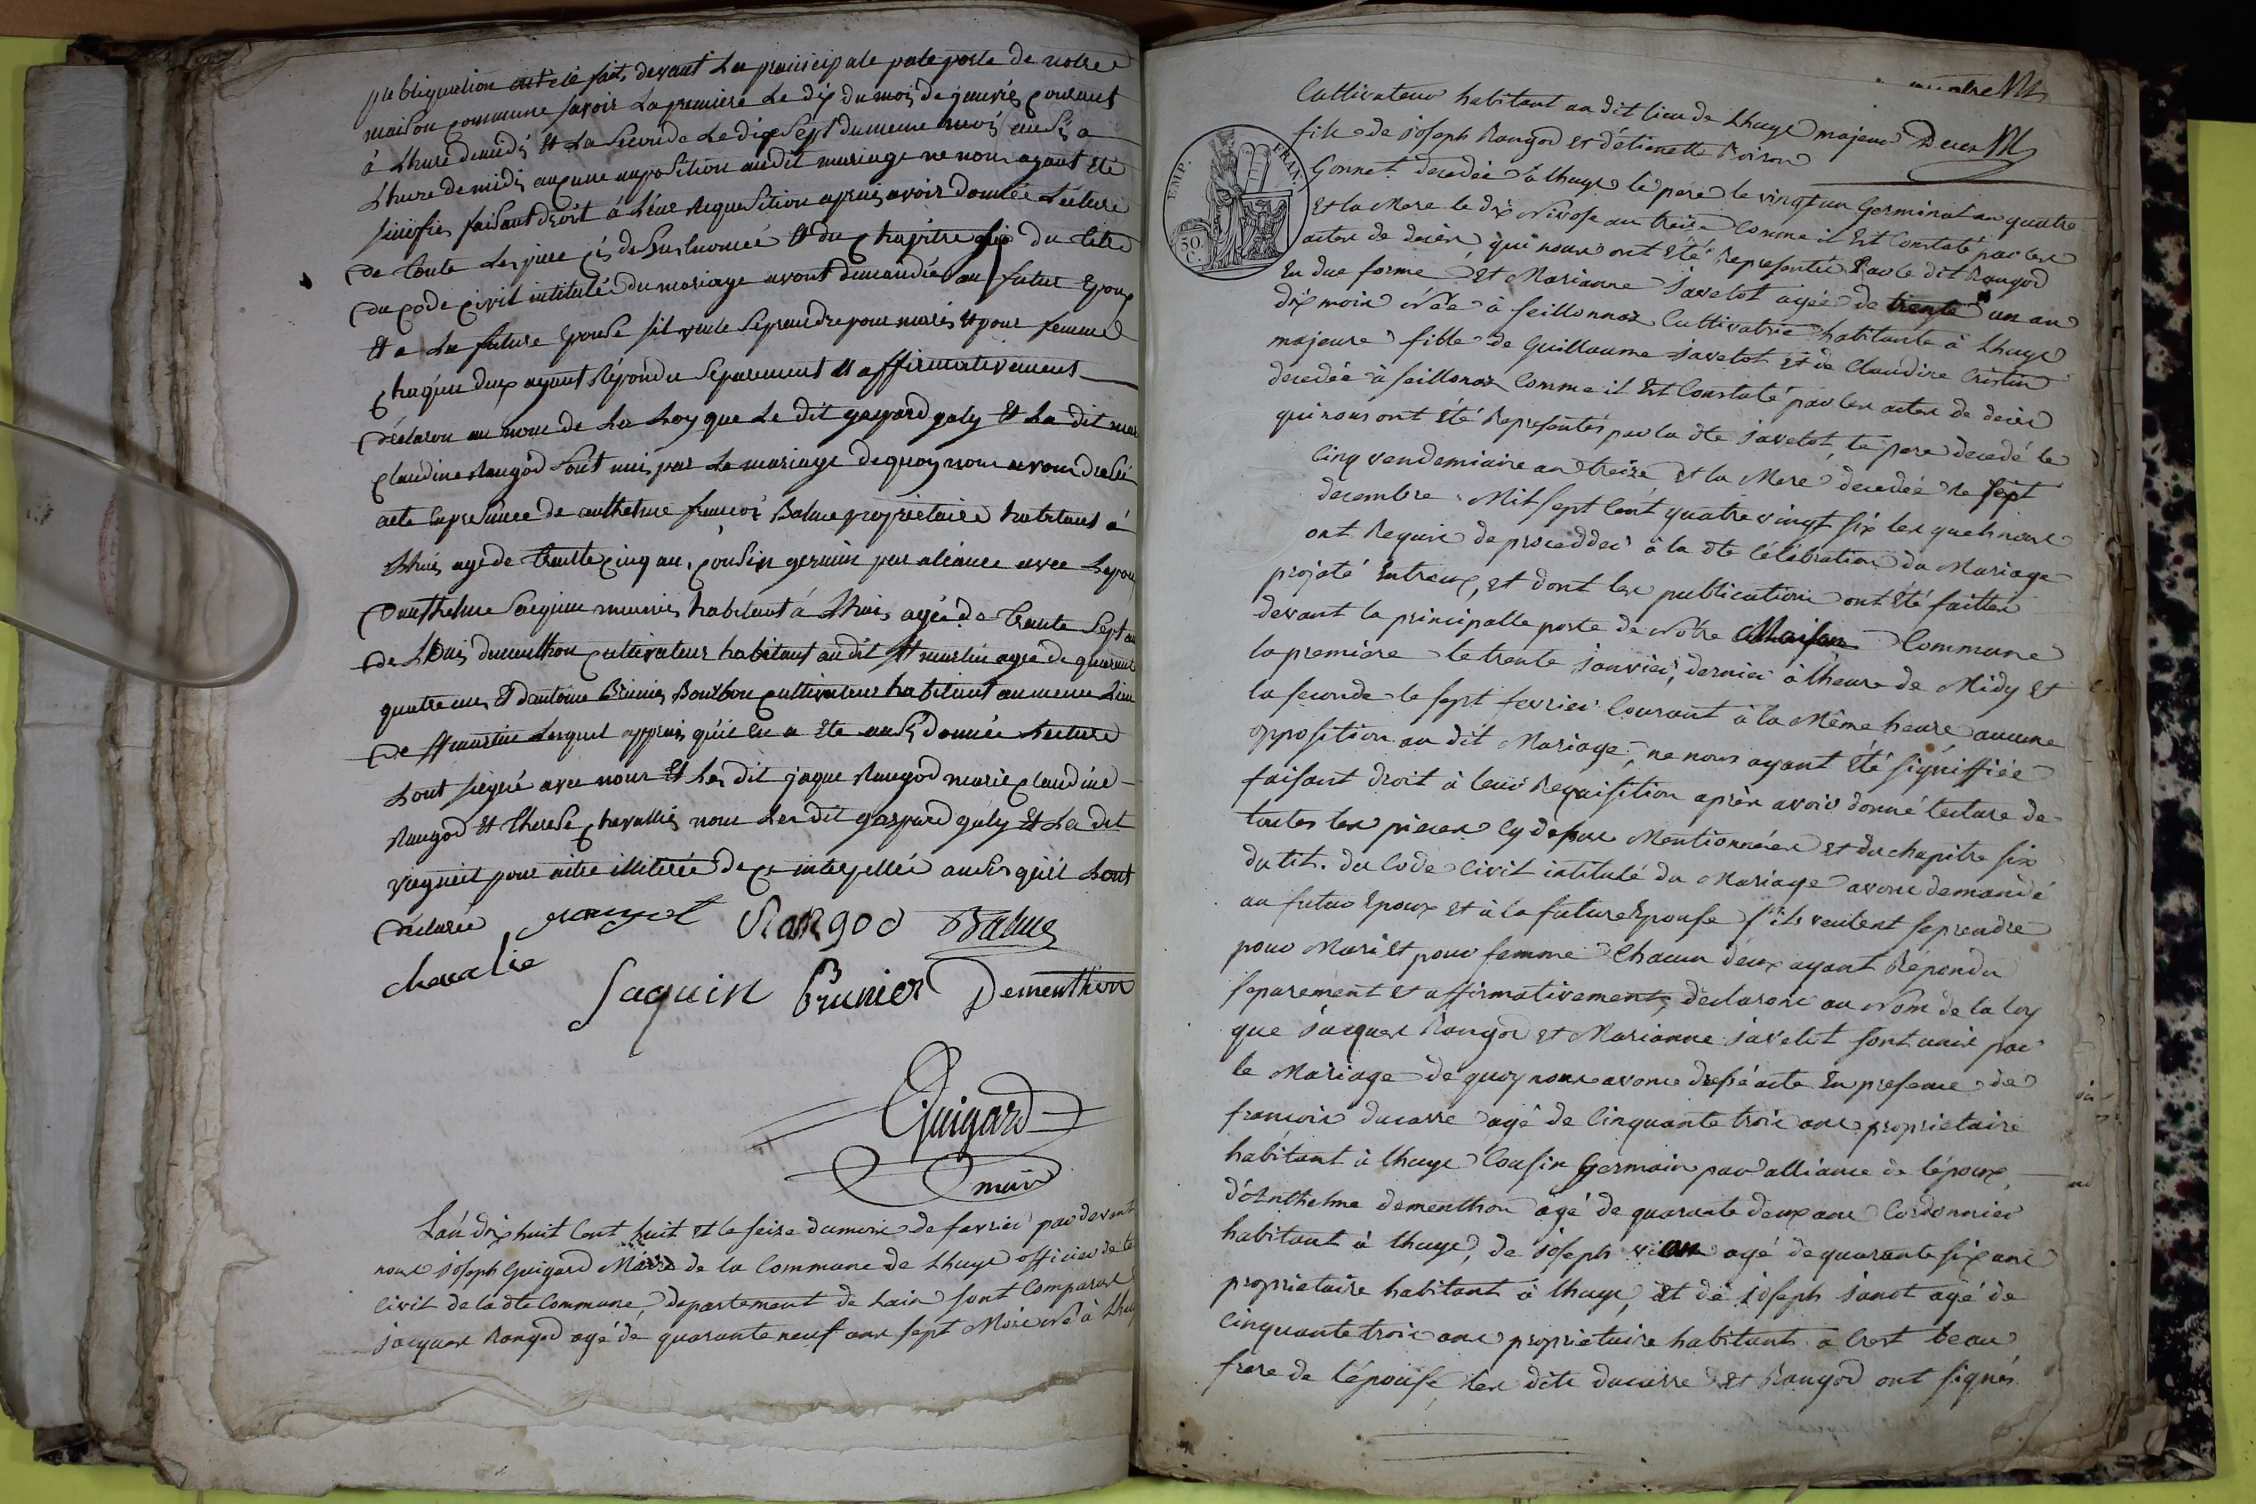 publiquation ont été fait devant La principale pate porte de notre
maison commune savoir La premiere Le dix du mois de janvier courant
à Lhure de midi et La seconde Le dix Sept du meme mois ausi a
Lhure de midi aucune auposition audit mariage ne nous ayant Eté
sinifier faisant droit á Léur Requesition apres avoir donnée Lecture
de toute Les piece ci de Sus enoncée et du chapitre six du titre
du code civil intitulé du mariage avont demandée au futur Epoux
et a La future Epouse sil veule se prandre pour maris et pour femme
chaqun deux ayant Répondu Séparement et affirmativement
déclaron au nom de La Loy que Le dit gaspard galy et La dit marie
claudine Rangod sont unis par Le mariage de quoy nous avon dressé
acte En presence de anthelme francoi Balme proprietaire habitant á
Lhuis agé de trante cinq an, cousin germain par aliance avec Lepoux
Danthelme Saquin munier habitant á Lhuis agée de trante Sept an
de Louis dementhon cultivateur habitant audit St martin agée de quarante
quatre ans et dantoine Brunier Bourbon cultivateur habitant au meme Lieu
de St martin Lesquel apprais quil leu a Eté ausi donnée Lecture
sont signé avec nous et Les dit jaque Rangod marie claudine
Rangod et therese chevallier nous Les dit gaspard galy et La dit
pour aitre illiterée de ce interpellée ausi quil Lont
declarée Rangod Balme
chevalie
Saquin Brunier Dementhon
Guigard
maire
L'an dix huit Cent huit et le seize du mois de fevrier par devant
nous Joseph Guigard Maire de la Commune de Lhuys officier de l'é
Civil de la dte Commune, departement de Lain sont Comparus
Jacques Rangod agé de quarante neuf ans sept Mois né à Lhuy
Cultivateur habitant au dit lieu de Lhuys majeur Deux M
fils de Joseph Rangod et d'étienette Poison
EMP. FRAN.
50. C.
Gonnet decedée à Lhuys le pere le vingt un Germinal an quatre
et la Mere le dix Nivose an treize Comme il Est Constaté par les
actes de decès, qui nous ont Eté Representés Par le dit Rangod
En due forme Et Marianne Javelot agée de trente un an
dix mois Née à seillonnaz Cultivatrice habitante à Lhuys
majeure fille de Guillaume Javelot Et de Claudine Cristin
decedée à seillonaz Comme il Est Constaté par les actes de decès
qui nous ont Eté Representés par la dte Javelot, le pere decedé le
Cinq vendemiaire an treize Et la Mere decedée le sept
decembre Mil sept Cent quatre vingt six les quels nous
ont Requis de proceddér à la dte Célébration du Mariage
projeté Entreux, et dont les publications ont Eté faittes
devant la principalle porte de Nôtre Maison Commune
la premiere le trente Janvier, dernier à lheure de Midy Et
la seconde le sept fevrier Courant à la Même heure aucune
opposition au dit Mariage, ne nous ayant Eté signiffiée
faisant droit à leur Requisition après avoir donné lecture de
toutes les pieces Cy dessus Mentionnées Et du chapitre six
du tit. du Code Civil intitulé du Mariage avons demandé
au futur Epoux Et à la future Epouse s'ils veulent se prendre
pour Mari Et pour femme Chacun d'eux ayant Répondu
separement Et affirmativement, declarons au Nom de la loy
que Jacques Rangod Et Marianne Javelot sont unis par
le Mariage de quoy nous avons dressé acte En presence de
francois ducarre agé de Cinquante trois ans proprietaire
habitant à lhuys Cousin Germain par alliance de l'époux,
d'Anthelme dementhon agé de quarante deux ans Cordonnier
habitant à Lhuys, de Joseph agé de quarante six ans
proprietaire habitant à lhuys, Et de Joseph Janot agé de
Cinquante trois ans proprietaire habitant à Crest beau
frere de l'épouse, les dits ducarre Et Rangod ont signés